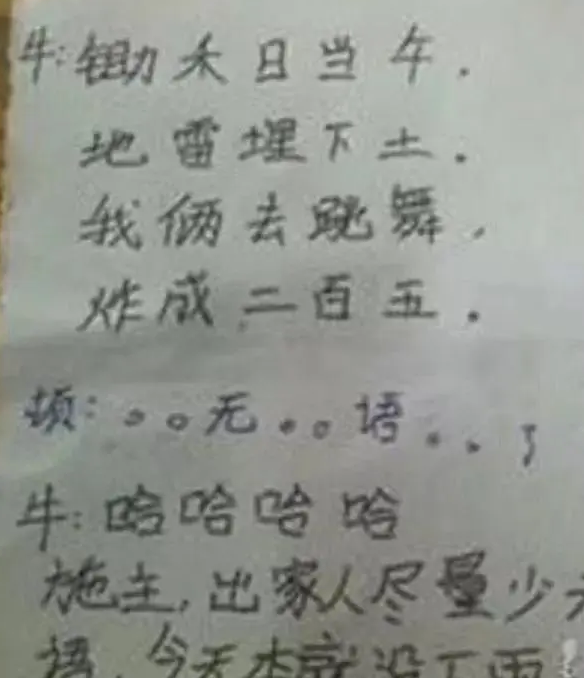 牛:锄禾日当午.
地雷埋下土.
我俩去跳舞,
炸成二百五.
顿:。。无。。语...了
牛:哈哈哈哈
施主,出家人尽量少
语,今天本就没下雨